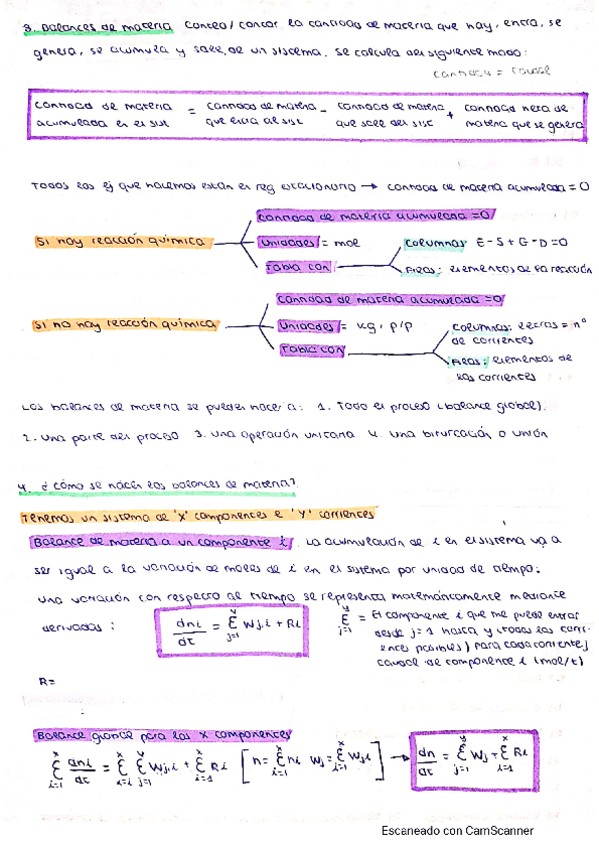 3. Balances de materia Conteo / contar la cantidad de materia que hay, entra, se
genera, se acumula y sale, de un sistema. Se calcula del siguiente modo:
cantidad = caudal
cantidad de materia acumulada en el sist = cantidad de materia que entra al sist - cantidad de materia que sale del sist + cantidad neta de materia que se genera
Todos los ej que hacemos están en reg estacionario → cantidad de materia acumulada = 0
Si hay reacción química
cantidad de materia acumulada = 0
Unidades = mol
Tabla con
columnas: E - S + G - D = 0
Filas: elementos de la reacción
Si no hay reacción química
cantidad de materia acumulada = 0
Unidades = kg, p/p
Tabla con
columnas: letras = nº
de corrientes
Filas: elementos de
las corrientes
Los balances de materia se pueden hacer a: 1. Todo el proceso (balance global).
2. una parte del proceso 3. una operación unitaria 4. una bifurcación o unión
4. ¿Cómo se hacen los balances de materia?
Tenemos un sistema de 'X' componentes e 'Y' corrientes
Balance de materia a un componente i. La acumulación de i en el sistema va a
ser igual a la variación de moles de i en el sistema por unidad de tiempo.
una variación con respecto al tiempo se representa matemáticamente mediante
derivadas: dni/dt = Σ(j=1, y) Wj,i + Ri
Σ(j=1, y) = El componente i que me puede entrar
desde j=1 hasta y (todas las corri-
entes posibles) para cada corriente j
caudal de componente i (mol/t)
R=
Balance global para los X componentes
Σ(i=1, x) dni/dt = Σ(i=1, x) Σ(j=1, y) Wj,i + Σ(i=1, x) Ri [n = Σ(i=1, x) ni Wj = Σ(i=1, x) Wj,i] → dn/dt = Σ(j=1, y) Wj + Σ(i=1, x) Ri
Escaneado con CamScanner